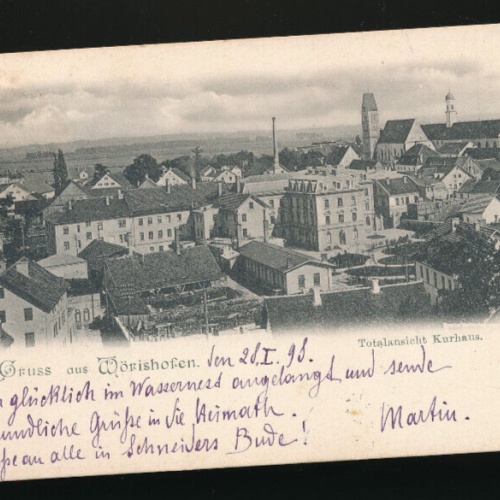 Totalansicht Kurhaus.
Gruss aus Wörishofen. den 28.I.98.
glücklich im Wassernest angelangt und sende
Grüße in die Heimath.
an alle in Schneiders Bude!
Martin.